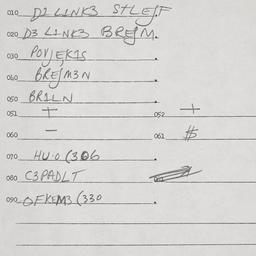 010 D2 L1NK3 STLEJF
020 D3 L1NK3 BREJM.
030 POVJEK1S
040 BREJM3N
050 BR1LN
051 + 052 +
060 — 061 #
070 HU·0 (306
080 C3PADLT
090 GFKEM3 (330